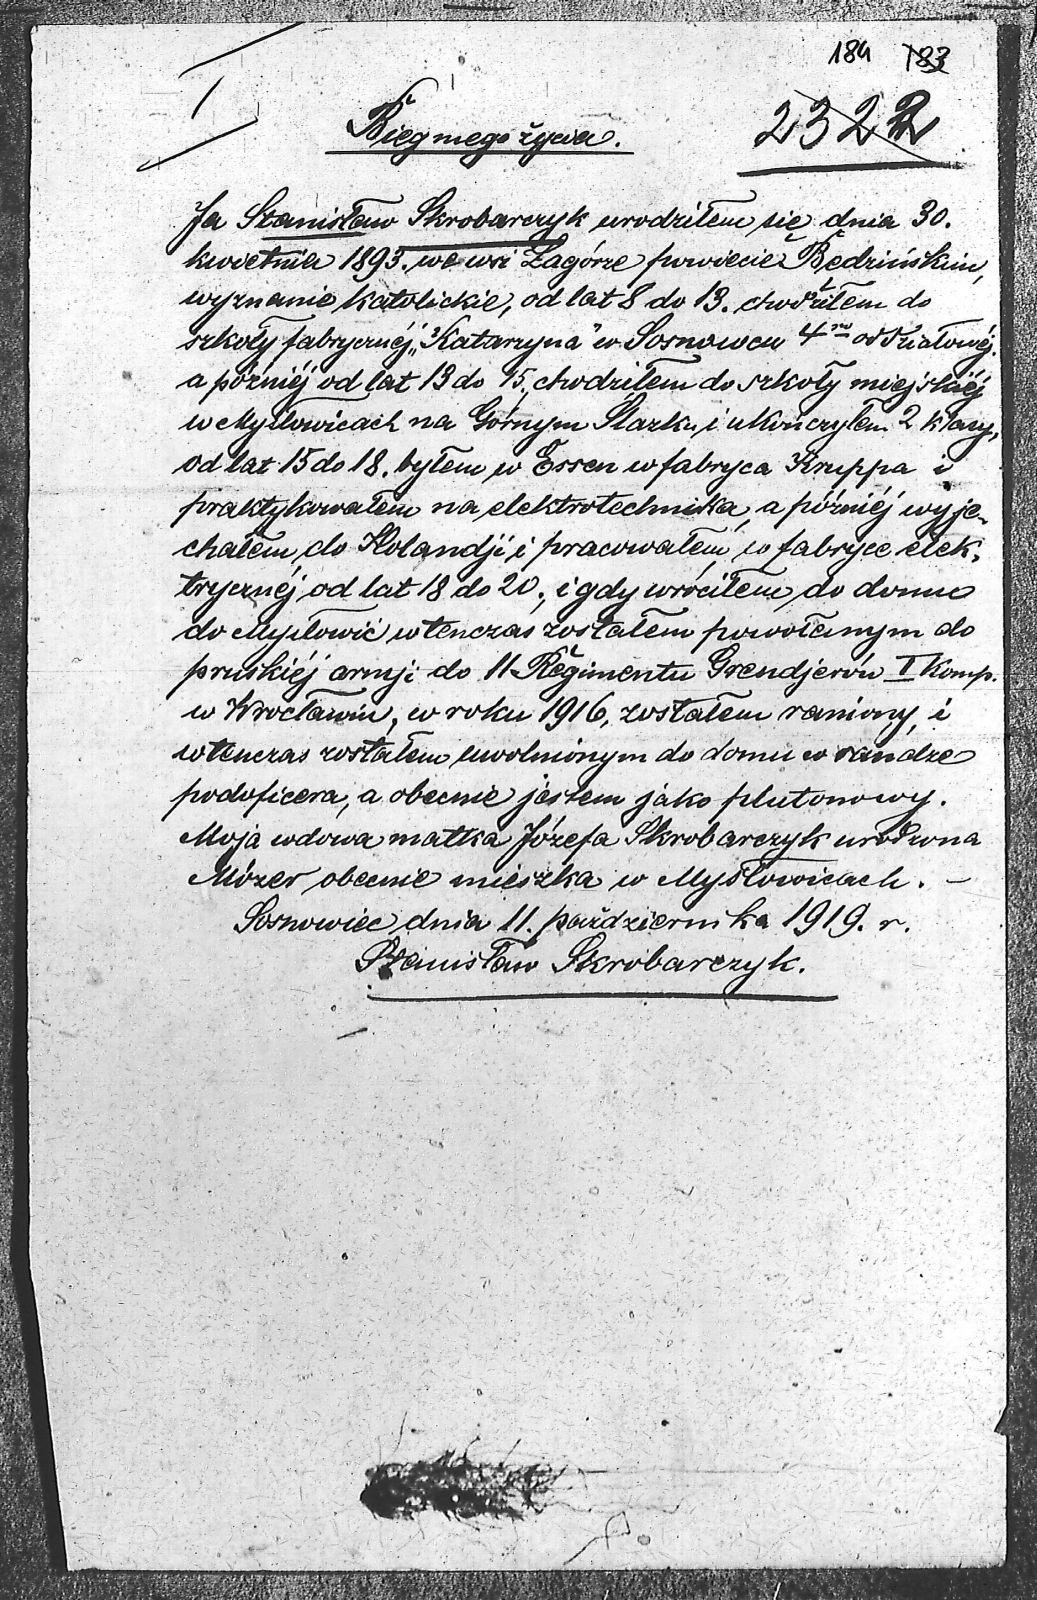 184 183
2322
Bieg mego życia.
Ja Stanisław Skrobarczyk urodziłem się dnia 30.
kwietnia 1893. we wsi Zagórze powiecie Będzińskim,
wyznanie katolickie, od lat 8 do 13. chodziłem do
szkoły fabrycznéj „Katarzyna" w Sosnowcu 4ro oddziałowéj.
a póżniéj od lat 13 do 15. chodziłem do szkoły miejskiéj
w Mysłowicach na Górnym Slązku, i ukończyłem 2 klasy,
od lat 15 do 18. byłem w Essen w fabryca Kruppa i
praktykowałem na elektrotechnika, a póżniéj wyje-
chałem do Holandji i pracowałem w fabryce elek-
trycznéj od lat 18 do 20., i gdy wróciłem do domu
do Mysłowić wtenczas zostałem powołanym do
pruskiéj armji do 11 Regimentu Grendjerów I Komp.
w Wrocławiu, w roku 1916, zostałem raniony, i
wtenczas zostałem uwolnionym do domu w randze
podoficera, a obecnie jestem jako plutonowy.
Moja wdowa matka Józefa Skrobarczyk urodzona
Mózer obecnie mieszka w Mysłowicach. –
Sosnowiec dnia 11. października 1919. r.
Stanisław Skrobarczyk.